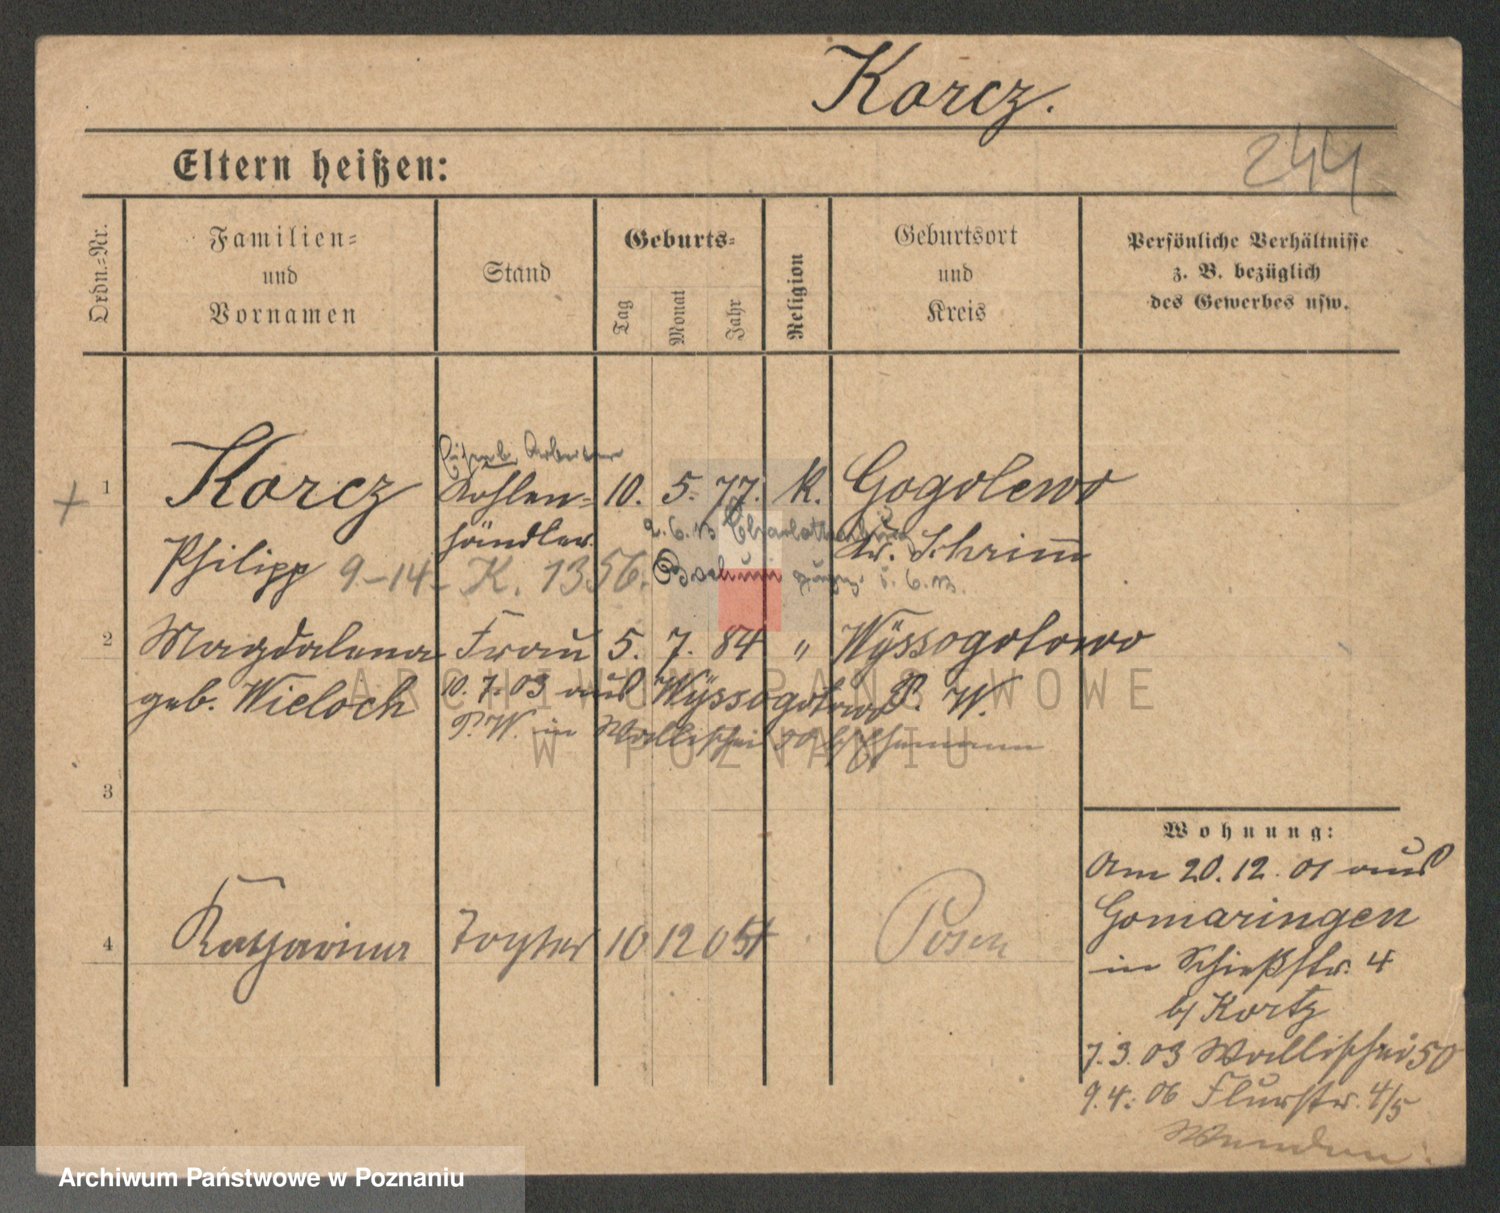 Korcz.
244
Eltern heißen:
Ordn.-Nr.
Familien-
und
Vornamen
Stand
Geburts-
Tag
Monat
Jahr
Religion
Geburtsort
und
Kreis
Persönliche Verhältnisse
z. B. bezüglich
des Gewerbes usw.
Arbeiter
+ 1 Korcz Kohlen- 10. 5. 77. K. Gogolewo
händler. 2.6.13 Charlottenburg Kr. Schrimm
Philipp 9-14- K. 1356. Bochum 6.13.
2 Magdalena Frau 5. 7. 84 " Wyssogotowo
geb. Wieloch 10. 7. 03 aus Wyssogotowo P. W.
P.W. in Wallischei 50 b/ Ehemann
3
4 Katharina Tochter 10 12 05 Posen
Wohnung:
Am 20. 12. 01 aus
Gomaringen
in Schießstr. 4
b/ Kortz
7. 3. 03 Wallischei 50
9. 4. 06 Flurstr. 4/5
ARCHIWUM PAŃSTWOWE
W POZNANIU
Archiwum Państwowe w Poznaniu